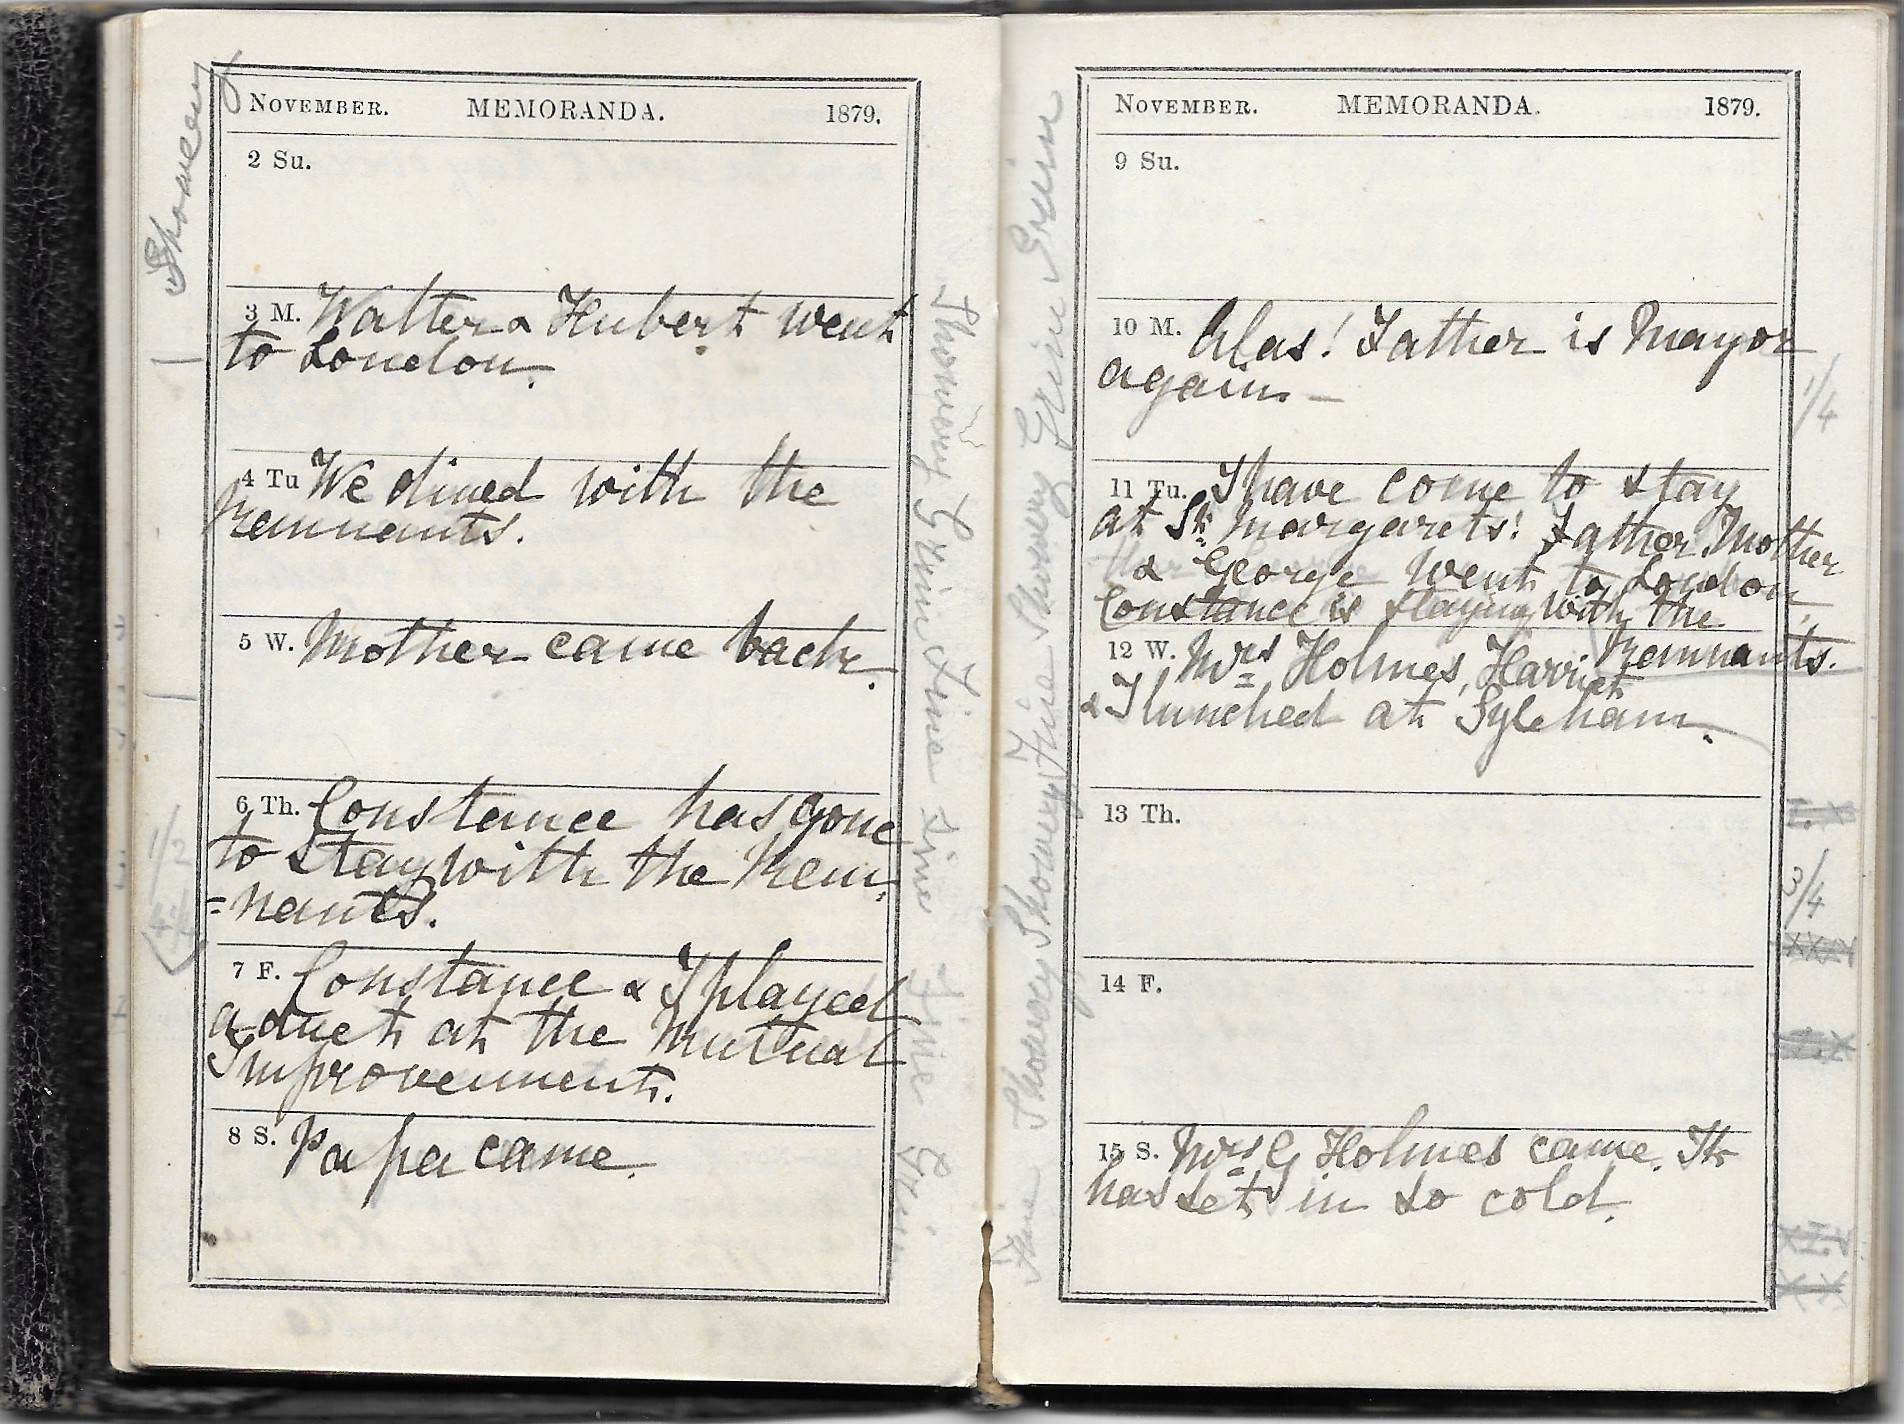 Showery
NOVEMBER. MEMORANDA. 1879.
2 Su.
3 M. Walter & Hubert went
to London.
4 Tu We dined with the
Remnants.
5 W. Mother came back.
6 Th. Constance has gone
to stay with the Rem-
=nants.
1/2
7 F. Constance & I played
a duet at the Mutual
Improvement.
8 S. Papa came.
Showery Grim Fine Fine Fine Grim
NOVEMBER. MEMORANDA. 1879.
9 Su.
10 M. Alas! Father is Mayor
again –
1/4
11 Tu. I have come to stay
at St. Margarets! Father, Mother
& George went to London.
Constance is staying with the
Remnants.
12 W. Mrs Holmes, Harriet
& I lunched at Syleham.
13 Th.
3/4
14 F.
15 S. Mrs G Holmes came. It
has set in so cold.
Fine Showery Showery Showery Fine Showery Grim Grim